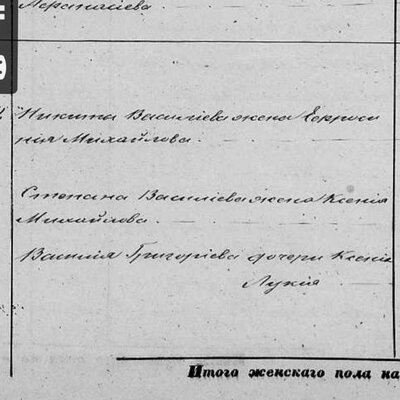 Никита Василіева жена Евроси
нія Михайлова.
Степана Василіева жена Ксенія
Михайлова.
Василія Григоріева дочери Ксенія
Лукія
Итого женскаго пола на